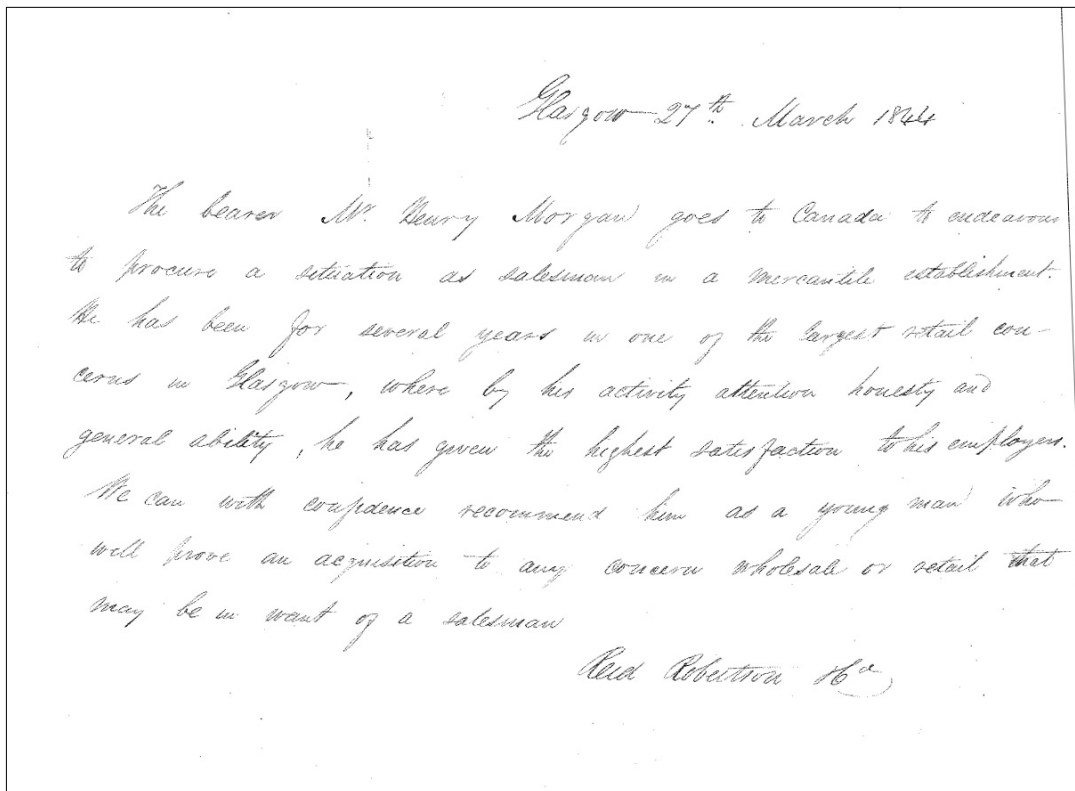 Glasgow 27th March 1844
The bearer Mr. Henry Morgan goes to Canada to endeavour
to procure a situation as salesman in a mercantile establishment.
He has been for several years in one of the largest retail con-
cerns in Glasgow, where by his activity attention honesty and
general ability, he has given the highest satisfaction to his employers.
We can with confidence recommend him as a young man who
will prove an acquisition to any concern wholesale or retail that
may be in want of a salesman
Reid Robertson & Co